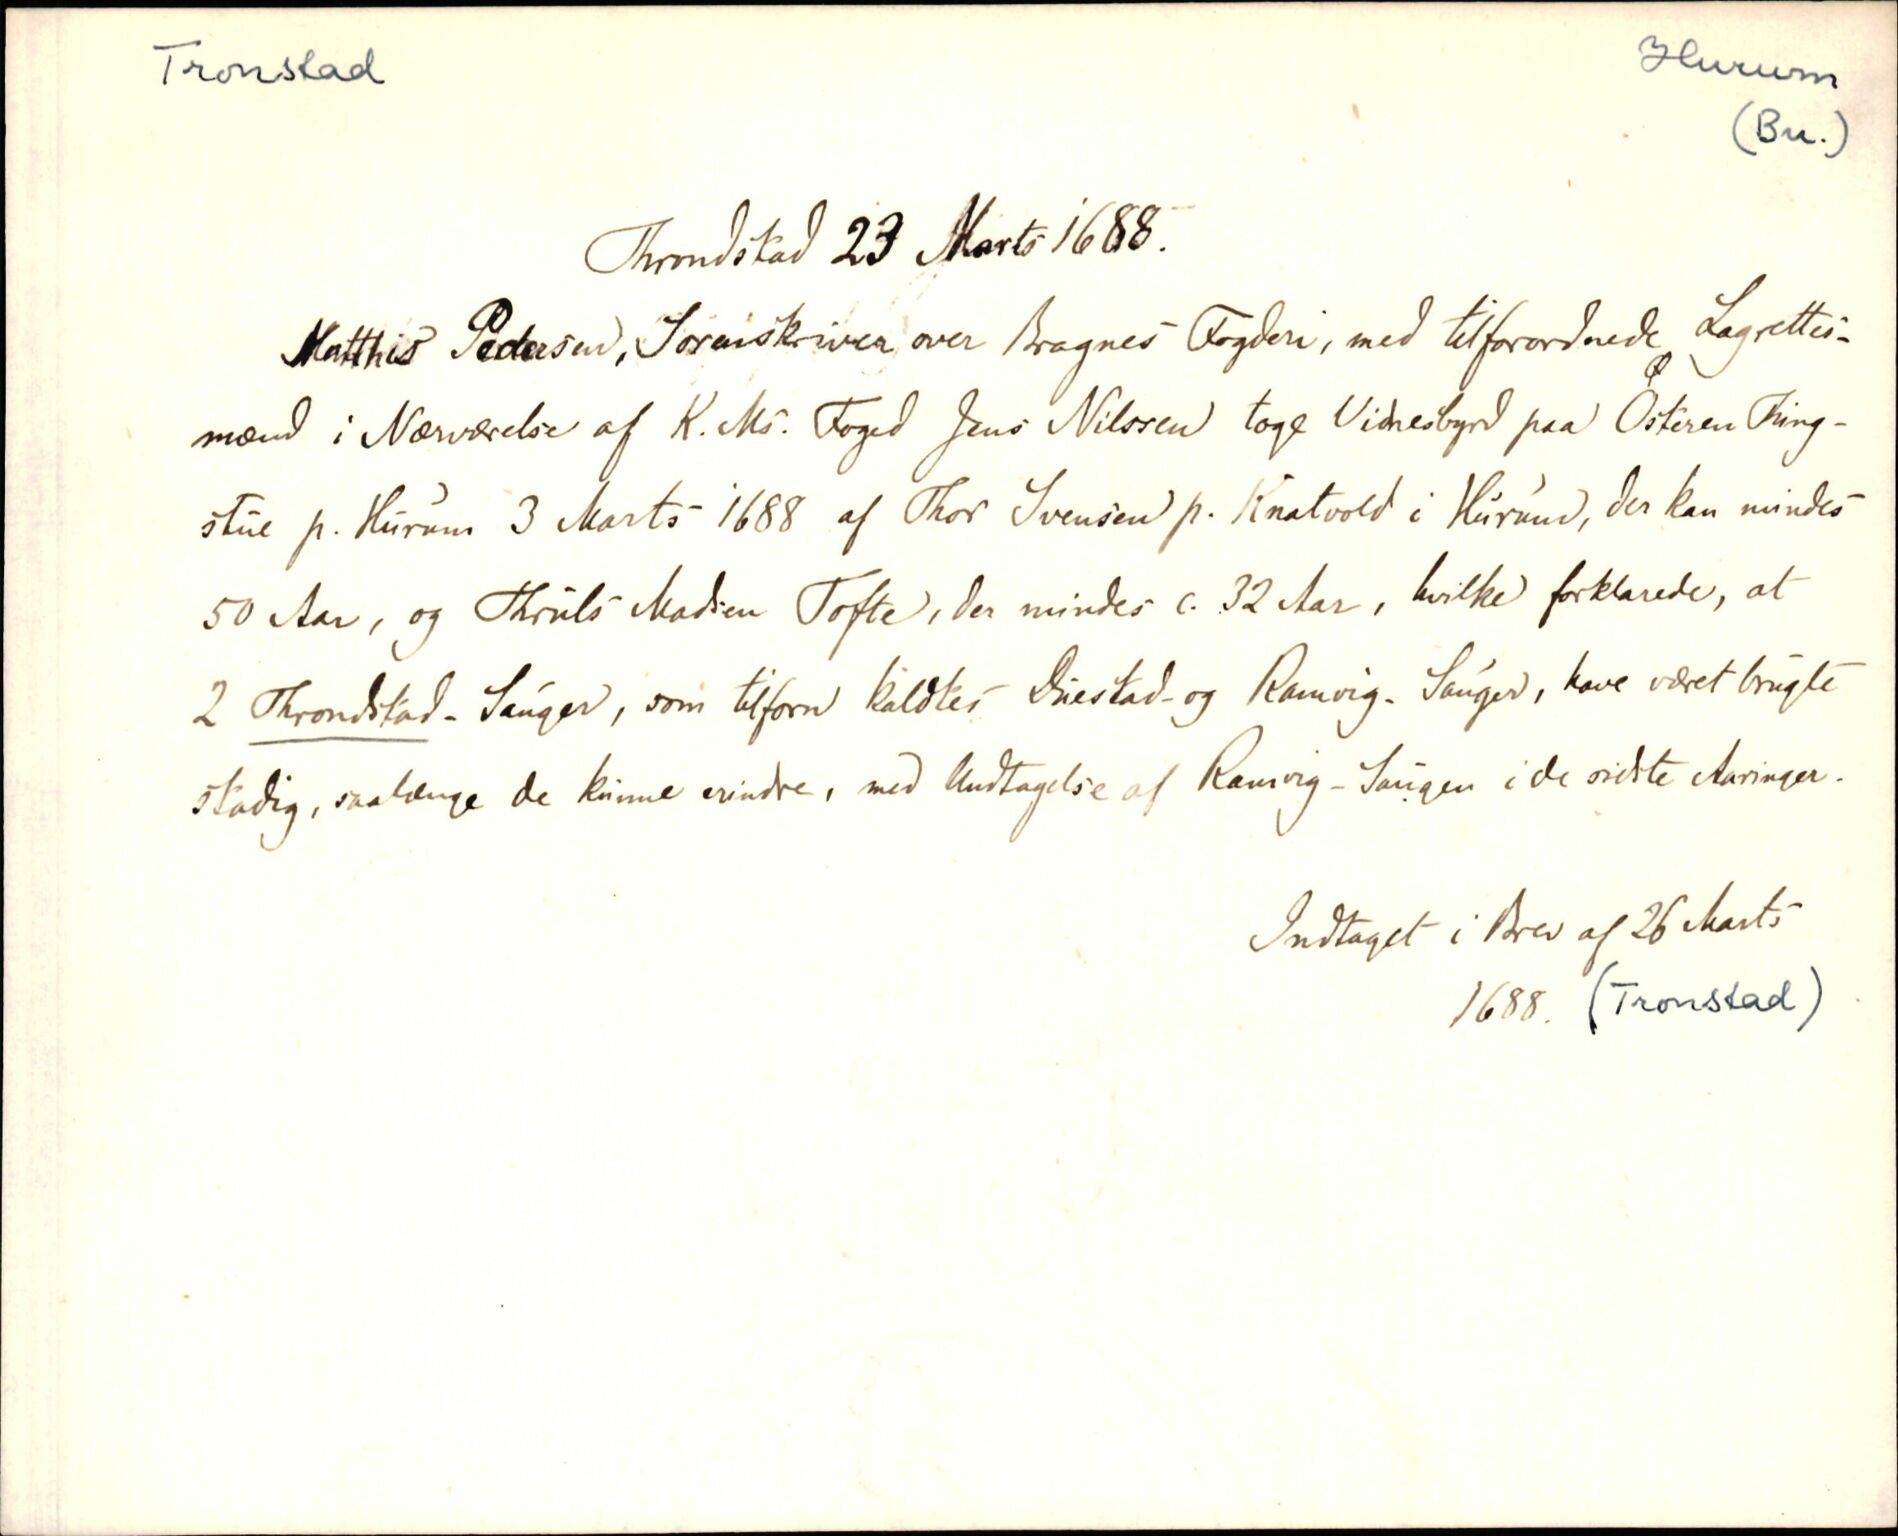 Tronstad
Hurum
(Bu.)
Throndstad 23 Marts 1688.
Matthis Pedersen, Sorenskriver over Bragnes Fogderi, med tilforordnede Lagrettes-
mænd i Nærværelse af K. Ms. Foged Jens Nilssen toge Vidnesbyrd paa Østeren Thing-
stue p. Hurum 3 Marts 1688 af Thor Svensen p. Knatvold i Hurum, der kan mindes
50 Aar, og Thruls Madsen Tofte, der mindes c. 32 Aar, hvilke forklarede, at
2 Throndstad-Sauger, som tilforn kaldtes Duestad- og Ramvig-Sauger, have været brugte
stadig, saalænge de kunne erindre, med Undtagelse af Ramvig-Saugen i de sidste Aaringer.
Indtaget i Brev af 26 Marts
1688. (Tronstad)